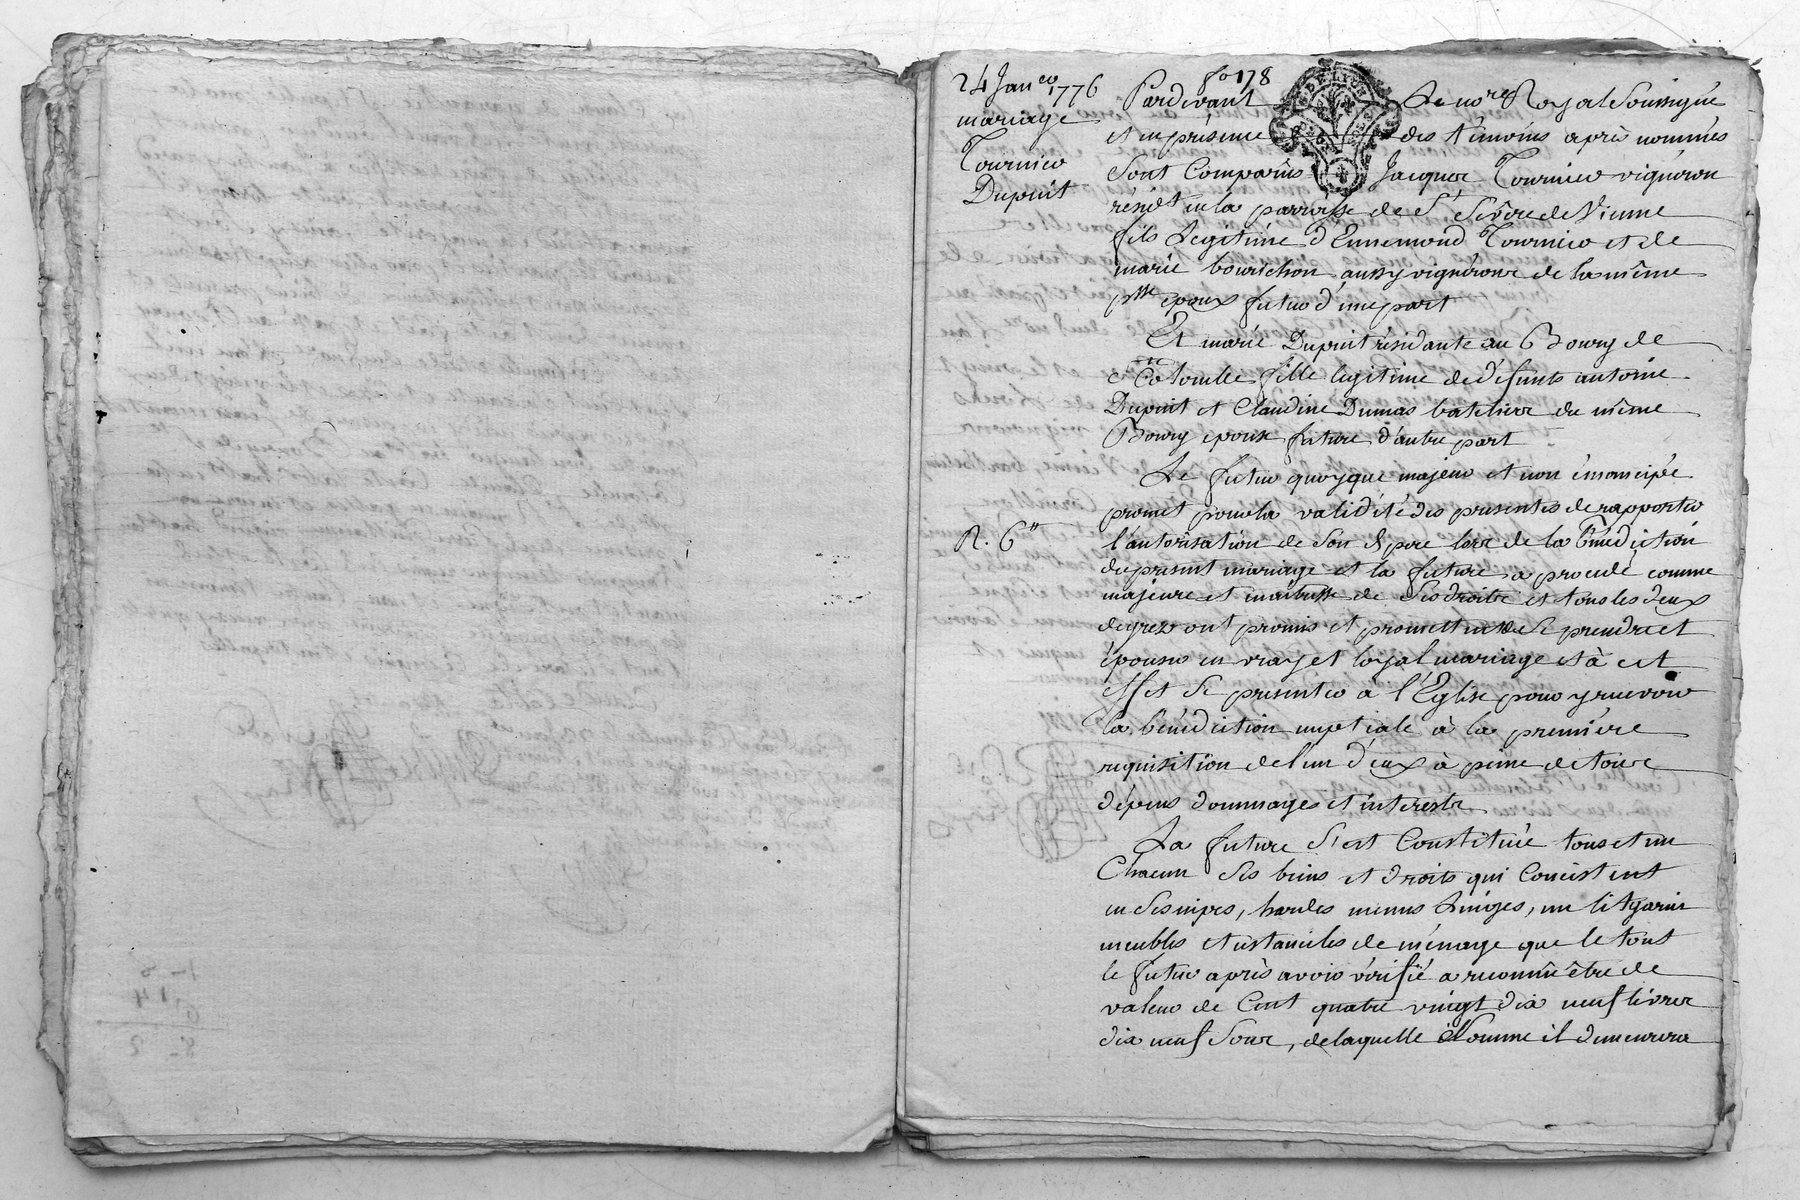 24 Janer 1776
mariage
Tournier
Dupuit
fo 178
Pardevant Le nore Royal Soussigné
et en présence des témoins après nommés
Sont Comparûs Jacques Tournier vigneron
résidt en la parroisse de St Sévère de Vienne
fils Legitime d'Ennemond Tournier et de
marie bourichon aussy vignerons de la même
psse epoux futur d'une part
Et marie Dupuit résidante au Bourg de
Ste Colombe fille legitime de défunts antoine
Dupuit et Claudine Dumas batelier du même
Bourg epouse future d'autre part
Le futur quoyque majeur et non émancipé
promet pour la validité des presentes de rapporter
R. 6tt
l'autorisation de Son d. pere lors de la Bénédiction
du present mariage et la future a procedé comme
majeure et maitresse de Ses droits et tous les deux
degrez ont promis et promettent de Se prendre et
épouser en vray et loyal mariage et à cet
effet Se presenter à l'Eglise pour y recevoir
la bénédiction nuptiale à la premiére
requisition de l'un d'eux à peine de tous
dépens dommages et interests
La future S'est Constituée tous et un
Chacun Ses biens et droits qui Consistent
en Ses nipes, hardes menus Linges, un lit garni
meubles et ustanciles de ménage que le tout
le futur après avoir vérifié a reconnû être de
valeur de Cent quatre vingt dix neuf livres
dix neuf Sous, de laquelle Somme il demeurera